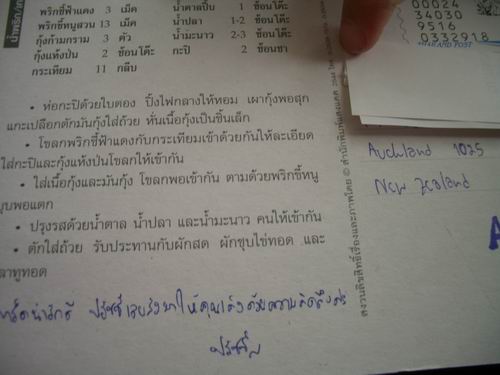 พริกชี้ฟ้าแดง 3 เม็ด น้ำตาลปี๊บ 1 ช้อนโต๊ะ
พริกขี้หนูสวน 13 เม็ด น้ำปลา 1-2 ช้อนโต๊ะ
กุ้งก้ามกราม 3 ตัว น้ำมะนาว 2-3 ช้อนโต๊ะ
กุ้งแห้งป่น 2 ช้อนโต๊ะ กะปิ 2 ช้อนชา
กระเทียม 11 กลีบ
• ห่อกะปิด้วยใบตอง ปิ้งไฟกลางให้หอม เผากุ้งพอสุก
แกะเปลือกตักมันกุ้งใส่ถ้วย หั่นเนื้อกุ้งเป็นชิ้นเล็ก
• โขลกพริกชี้ฟ้าแดงกับกระเทียมเข้าด้วยกันให้ละเอียด
ใส่กะปิและกุ้งแห้งป่นโขลกให้เข้ากัน
• ใส่เนื้อกุ้งและมันกุ้ง โขลกพอเข้ากัน ตามด้วยพริกขี้หนู
บุบพอแตก
• ปรุงรสด้วยน้ำตาล น้ำปลา และน้ำมะนาว คนให้เข้ากัน
• ตักใส่ถ้วย รับประทานกับผักสด ผักชุบไข่ทอด และ
ลาทูทอด
สงวนลิขสิทธิ์เรื่องและภาพโดย © สำนักพิมพ์แสงแดด
00024
34030
9515
0332918
THAILAND POST
Auckland 1025
New Zealand